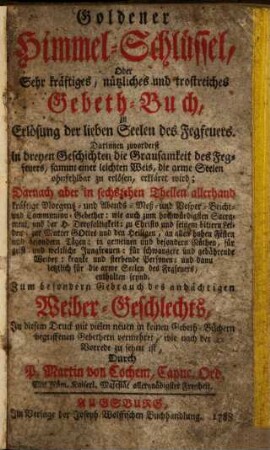 Goldener
Himmel-Schlüssel,
Oder
Sehr kräftiges, nützliches und trostreiches
Gebeth-Buch,
zu
Erlösung der lieben Seelen des Fegfeuers.
Darinnen zuvorderst
In dreyen Geschichten die Grausamkeit des Feg-
feuers, sammt einer leichten Weis, die arme Seelen
ohnfehlbar zu erlösen, erklärt wird;
Darnach aber in sechszehen Theilen allerhand
kräftige Morgens- und Abends- Meß- und Vesper- Beicht-
und Communion-Gebether: wie auch zum hochwürdigsten Sacra-
ment, und der h. Dreyfaltigkeit; zu Christo und seinem bittern Lei-
den; zur Mutter Gottes und den Heiligen; an allen hohen Festen
und besondern Tägen: in gemeinen und besondern Nöthen, für
geist- und weltliche Jungfrauen: für schwangere und gebährende
Weiber: kranke und sterbende Personen: und dann
letzlich für die arme Seelen des Fegfeuers,
enthalten seynd.
Zum besondern Gebrauch des andächtigen
Weiber-Geschlechts,
In diesem Druck mit vielen neuen in keinen Gebeth-Büchern
begriffenen Gebethern vermehret, wie nach der
Vorrede zu sehen ist,
Durch
P. Martin von Cochem, Capuc. Ord.
Mit Röm. Kaiserl. Majestät allergnädigster Freyheit.
AUGSBURG,
Im Verlage der Joseph Wolffischen Buchhandlung.